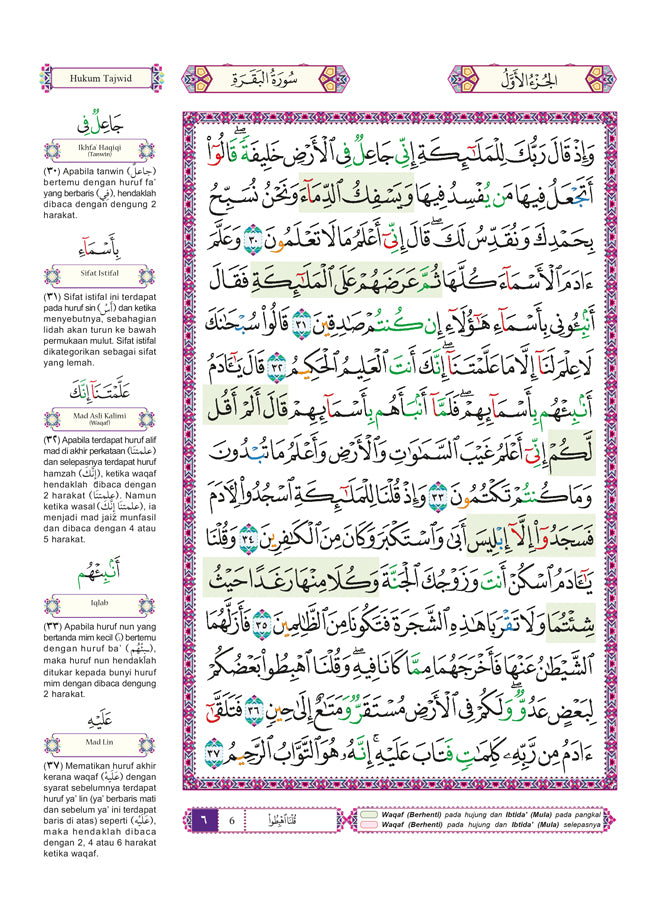 Hukum Tajwid
سُورَةُ الْبَقَرَةِ
الجُزْءُ الأَوَّلُ
جَاعِلٌ فِي
Ikhfa' Haqiqi
(Tanwin)
(٣٠) Apabila tanwin (جاعلٌ)
bertemu dengan huruf fa'
yang berbaris (فِي), hendaklah
dibaca dengan dengung 2
harakat.
بِأَسْمَآءِ
Sifat Istifal
(٣١) Sifat istifal ini terdapat
pada huruf sin (أَسْ) dan ketika
menyebutnya, sebahagian
lidah akan turun ke bawah
permukaan mulut. Sifat istifal
dikategorikan sebagai sifat
yang lemah.
عَلَّمْتَنَآ إِنَّكَ
Mad Asli Kalimi
(Waqaf)
(٣٢) Apabila terdapat huruf alif
mad di akhir perkataan (علمتنَا)
dan selepasnya terdapat huruf
hamzah (إِنَّكَ), ketika waqaf
hendaklah dibaca dengan
2 harakat (علمتنَا). Namun
ketika wasal (علمتنَآ إِنَّكَ), ia
menjadi mad jaiz munfasil
dan dibaca dengan 4 atau
5 harakat.
أَنۢبِئْهُم
Iqlab
(٣٣) Apabila huruf nun yang
bertanda mim kecil (نۢ) bertemu
dengan huruf ba' (بِئْهُم),
maka huruf nun hendaklah
ditukar kepada bunyi huruf
mim dengan dibaca dengung
2 harakat.
عَلَيْهِ
Mad Lin
(٣٧) Mematikan huruf akhir
kerana waqaf (عَلَيْهْ) dengan
syarat sebelumnya terdapat
huruf ya' lin (ya' berbaris mati
dan sebelum ya' ini terdapat
baris di atas) seperti (عَلَيْهِ),
maka hendaklah dibaca
dengan 2, 4 atau 6 harakat
ketika waqaf.
وَإِذْ قَالَ رَبُّكَ لِلْمَلَٰٓئِكَةِ إِنِّي جَاعِلٌ فِي ٱلْأَرْضِ خَلِيفَةً ۖ قَالُوٓا۟
أَتَجْعَلُ فِيهَا مَن يُفْسِدُ فِيهَا وَيَسْفِكُ ٱلدِّمَآءَ وَنَحْنُ نُسَبِّحُ
بِحَمْدِكَ وَنُقَدِّسُ لَكَ ۖ قَالَ إِنِّيٓ أَعْلَمُ مَا لَا تَعْلَمُونَ ٣٠ وَعَلَّمَ
ءَادَمَ ٱلْأَسْمَآءَ كُلَّهَا ثُمَّ عَرَضَهُمْ عَلَى ٱلْمَلَٰٓئِكَةِ فَقَالَ
أَنۢبِـُٔونِي بِأَسْمَآءِ هَٰٓؤُلَآءِ إِن كُنتُمْ صَٰدِقِينَ ٣١ قَالُوا۟ سُبْحَٰنَكَ
لَا عِلْمَ لَنَآ إِلَّا مَا عَلَّمْتَنَآ ۖ إِنَّكَ أَنتَ ٱلْعَلِيمُ ٱلْحَكِيمُ ٣٢ قَالَ يَٰٓـَٔادَمُ
أَنۢبِئْهُم بِأَسْمَآئِهِمْ ۖ فَلَمَّآ أَنۢبَأَهُم بِأَسْمَآئِهِمْ قَالَ أَلَمْ أَقُل
لَّكُمْ إِنِّيٓ أَعْلَمُ غَيْبَ ٱلسَّمَٰوَٰتِ وَٱلْأَرْضِ وَأَعْلَمُ مَا تُبْدُونَ
وَمَا كُنتُمْ تَكْتُمُونَ ٣٣ وَإِذْ قُلْنَا لِلْمَلَٰٓئِكَةِ ٱسْجُدُوا۟ لِءَادَمَ
فَسَجَدُوٓا۟ إِلَّآ إِبْلِيسَ أَبَىٰ وَٱسْتَكْبَرَ وَكَانَ مِنَ ٱلْكَٰفِرِينَ ٣٤ وَقُلْنَا
يَٰٓـَٔادَمُ ٱسْكُنْ أَنتَ وَزَوْجُكَ ٱلْجَنَّةَ وَكُلَا مِنْهَا رَغَدًا حَيْثُ
شِئْتُمَا وَلَا تَقْرَبَا هَٰذِهِ ٱلشَّجَرَةَ فَتَكُونَا مِنَ ٱلظَّٰلِمِينَ ٣٥ فَأَزَلَّهُمَا
ٱلشَّيْطَٰنُ عَنْهَا فَأَخْرَجَهُمَا مِمَّا كَانَا فِيهِ ۖ وَقُلْنَا ٱهْبِطُوا۟ بَعْضُكُمْ
لِبَعْضٍ عَدُوٌّ ۖ وَلَكُمْ فِي ٱلْأَرْضِ مُسْتَقَرٌّ وَمَتَٰعٌ إِلَىٰ حِينٍ ٣٦ فَتَلَقَّىٰٓ
ءَادَمُ مِن رَّبِّهِۦ كَلِمَٰتٍ فَتَابَ عَلَيْهِ ۚ إِنَّهُۥ هُوَ ٱلتَّوَّابُ ٱلرَّحِيمُ ٣٧
٦ 6 قُلْنَا اهْبِطُوا۟
Waqaf (Berhenti) pada hujung dan Ibtida' (Mula) pada pangkal
Waqaf (Berhenti) pada hujung dan Ibtida' (Mula) selepasnya